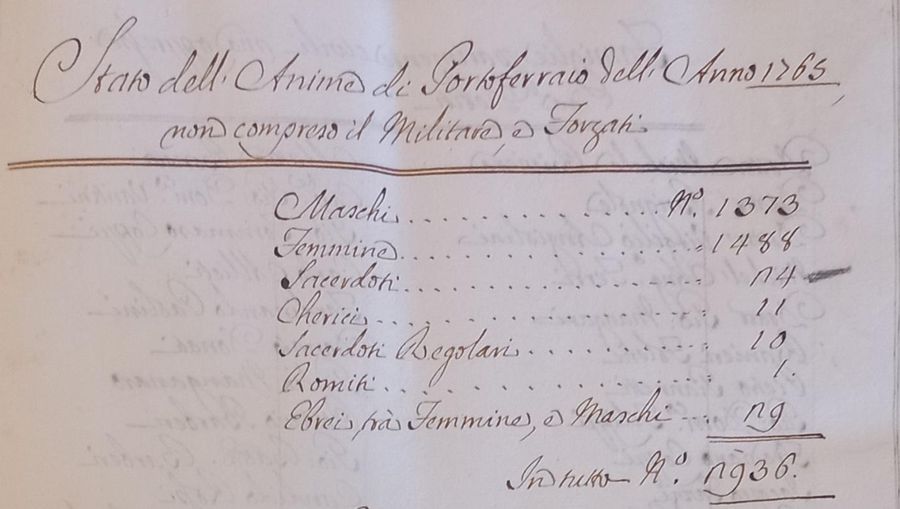 Stato dell'Anime di Portoferraio dell'Anno 1765
non compreso il Militare, e Forzati.
Maschi .............. N.º 1373
Femmine .............. 1488
Sacerdoti .............. 24
Cherici .............. 11
Sacerdoti Regolari .......... 10
Romiti .............. 1.
Ebrei frà Femmine, e Maschi .... 29
In tutto N.º 2936.